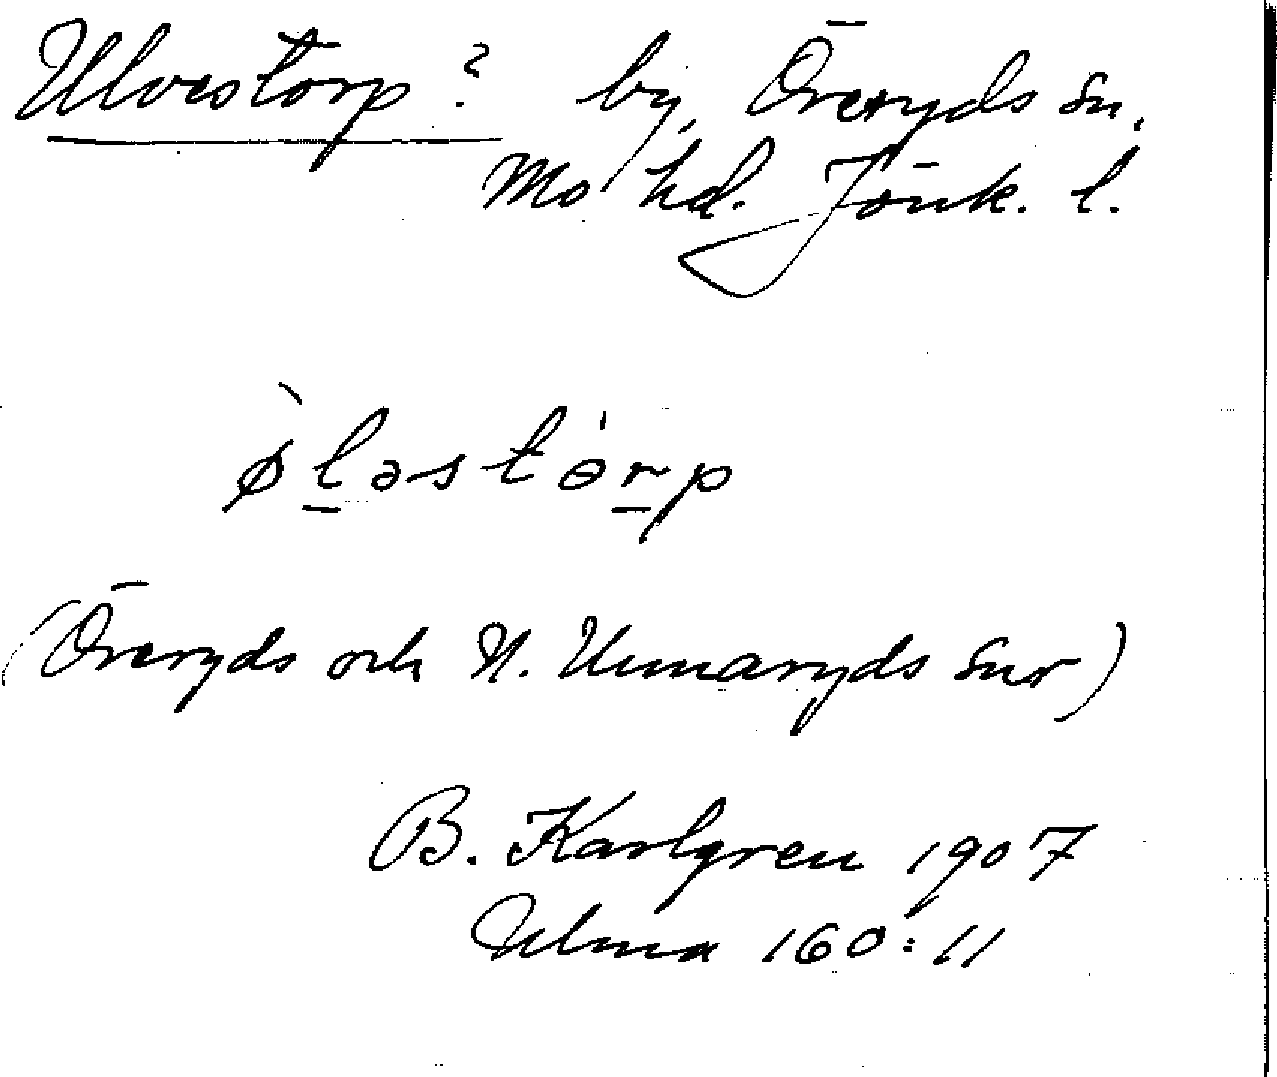 Ulvestorp? by, Öreryds sn.
Mo hd. Jönk. l.
ø̀l̲əstɵ́r̲p
(Öreryds och N. Unnaryds snr)
B. Karlgren 1907
Ulma 160:11